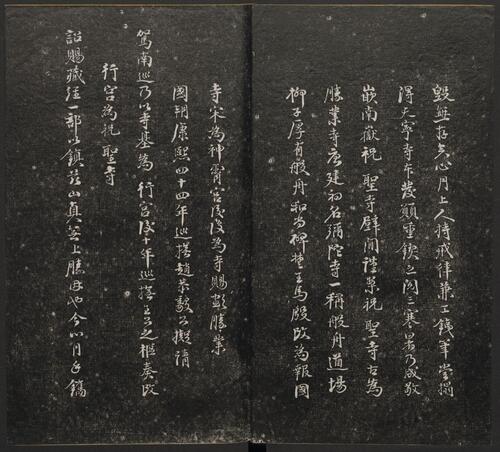 毀無存矣心月上人持戒律兼工鐵筆嘗搨
得天寧寺本發願重鋟之閱三寒暑乃成敬
嵌南嶽祝 聖寺壁間謹案祝 聖寺古為
勝業寺唐建初名彌陀寺一稱般舟道場
柳子厚有般舟和尚碑楚王馬殷改為報國
寺宋為神霄宮後復為寺賜額勝業
國朝康熙四十四年巡撫趙恭毅公擬請
駕南巡乃以寺基為 行宮後十年巡撫王公之樞奏改
行宮為祝 聖寺
詔賜藏經一部以鎮茲山真無上勝因也今心月手鐫